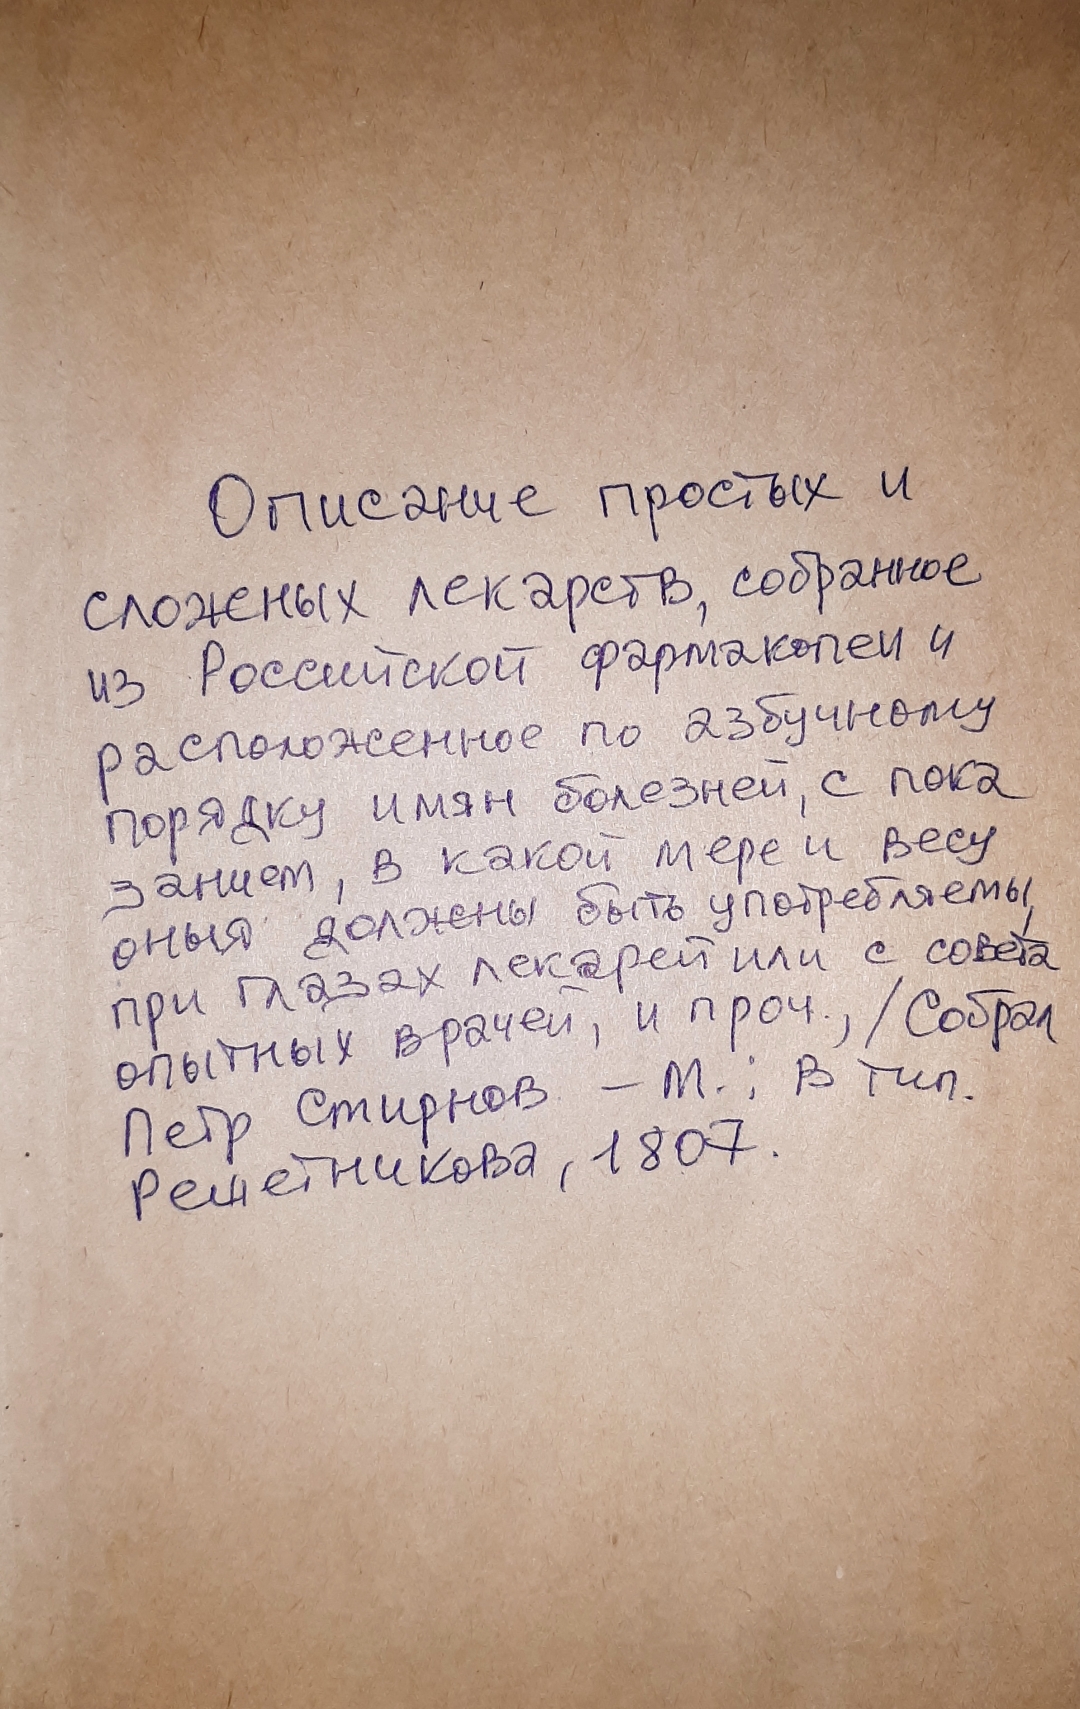 Описание простых и
сложеных лекарств, собранное
из Российской фармакопеи и
расположенное по азбучному
порядку имян болезней, с пока
занием, в какой мере и весу
оныя должены быть употребляемы,
при глазах лекарей или с совета
опытных врачей, и проч., / Собрал
Петр Смирнов - М. : В тип.
Решетникова, 1807.